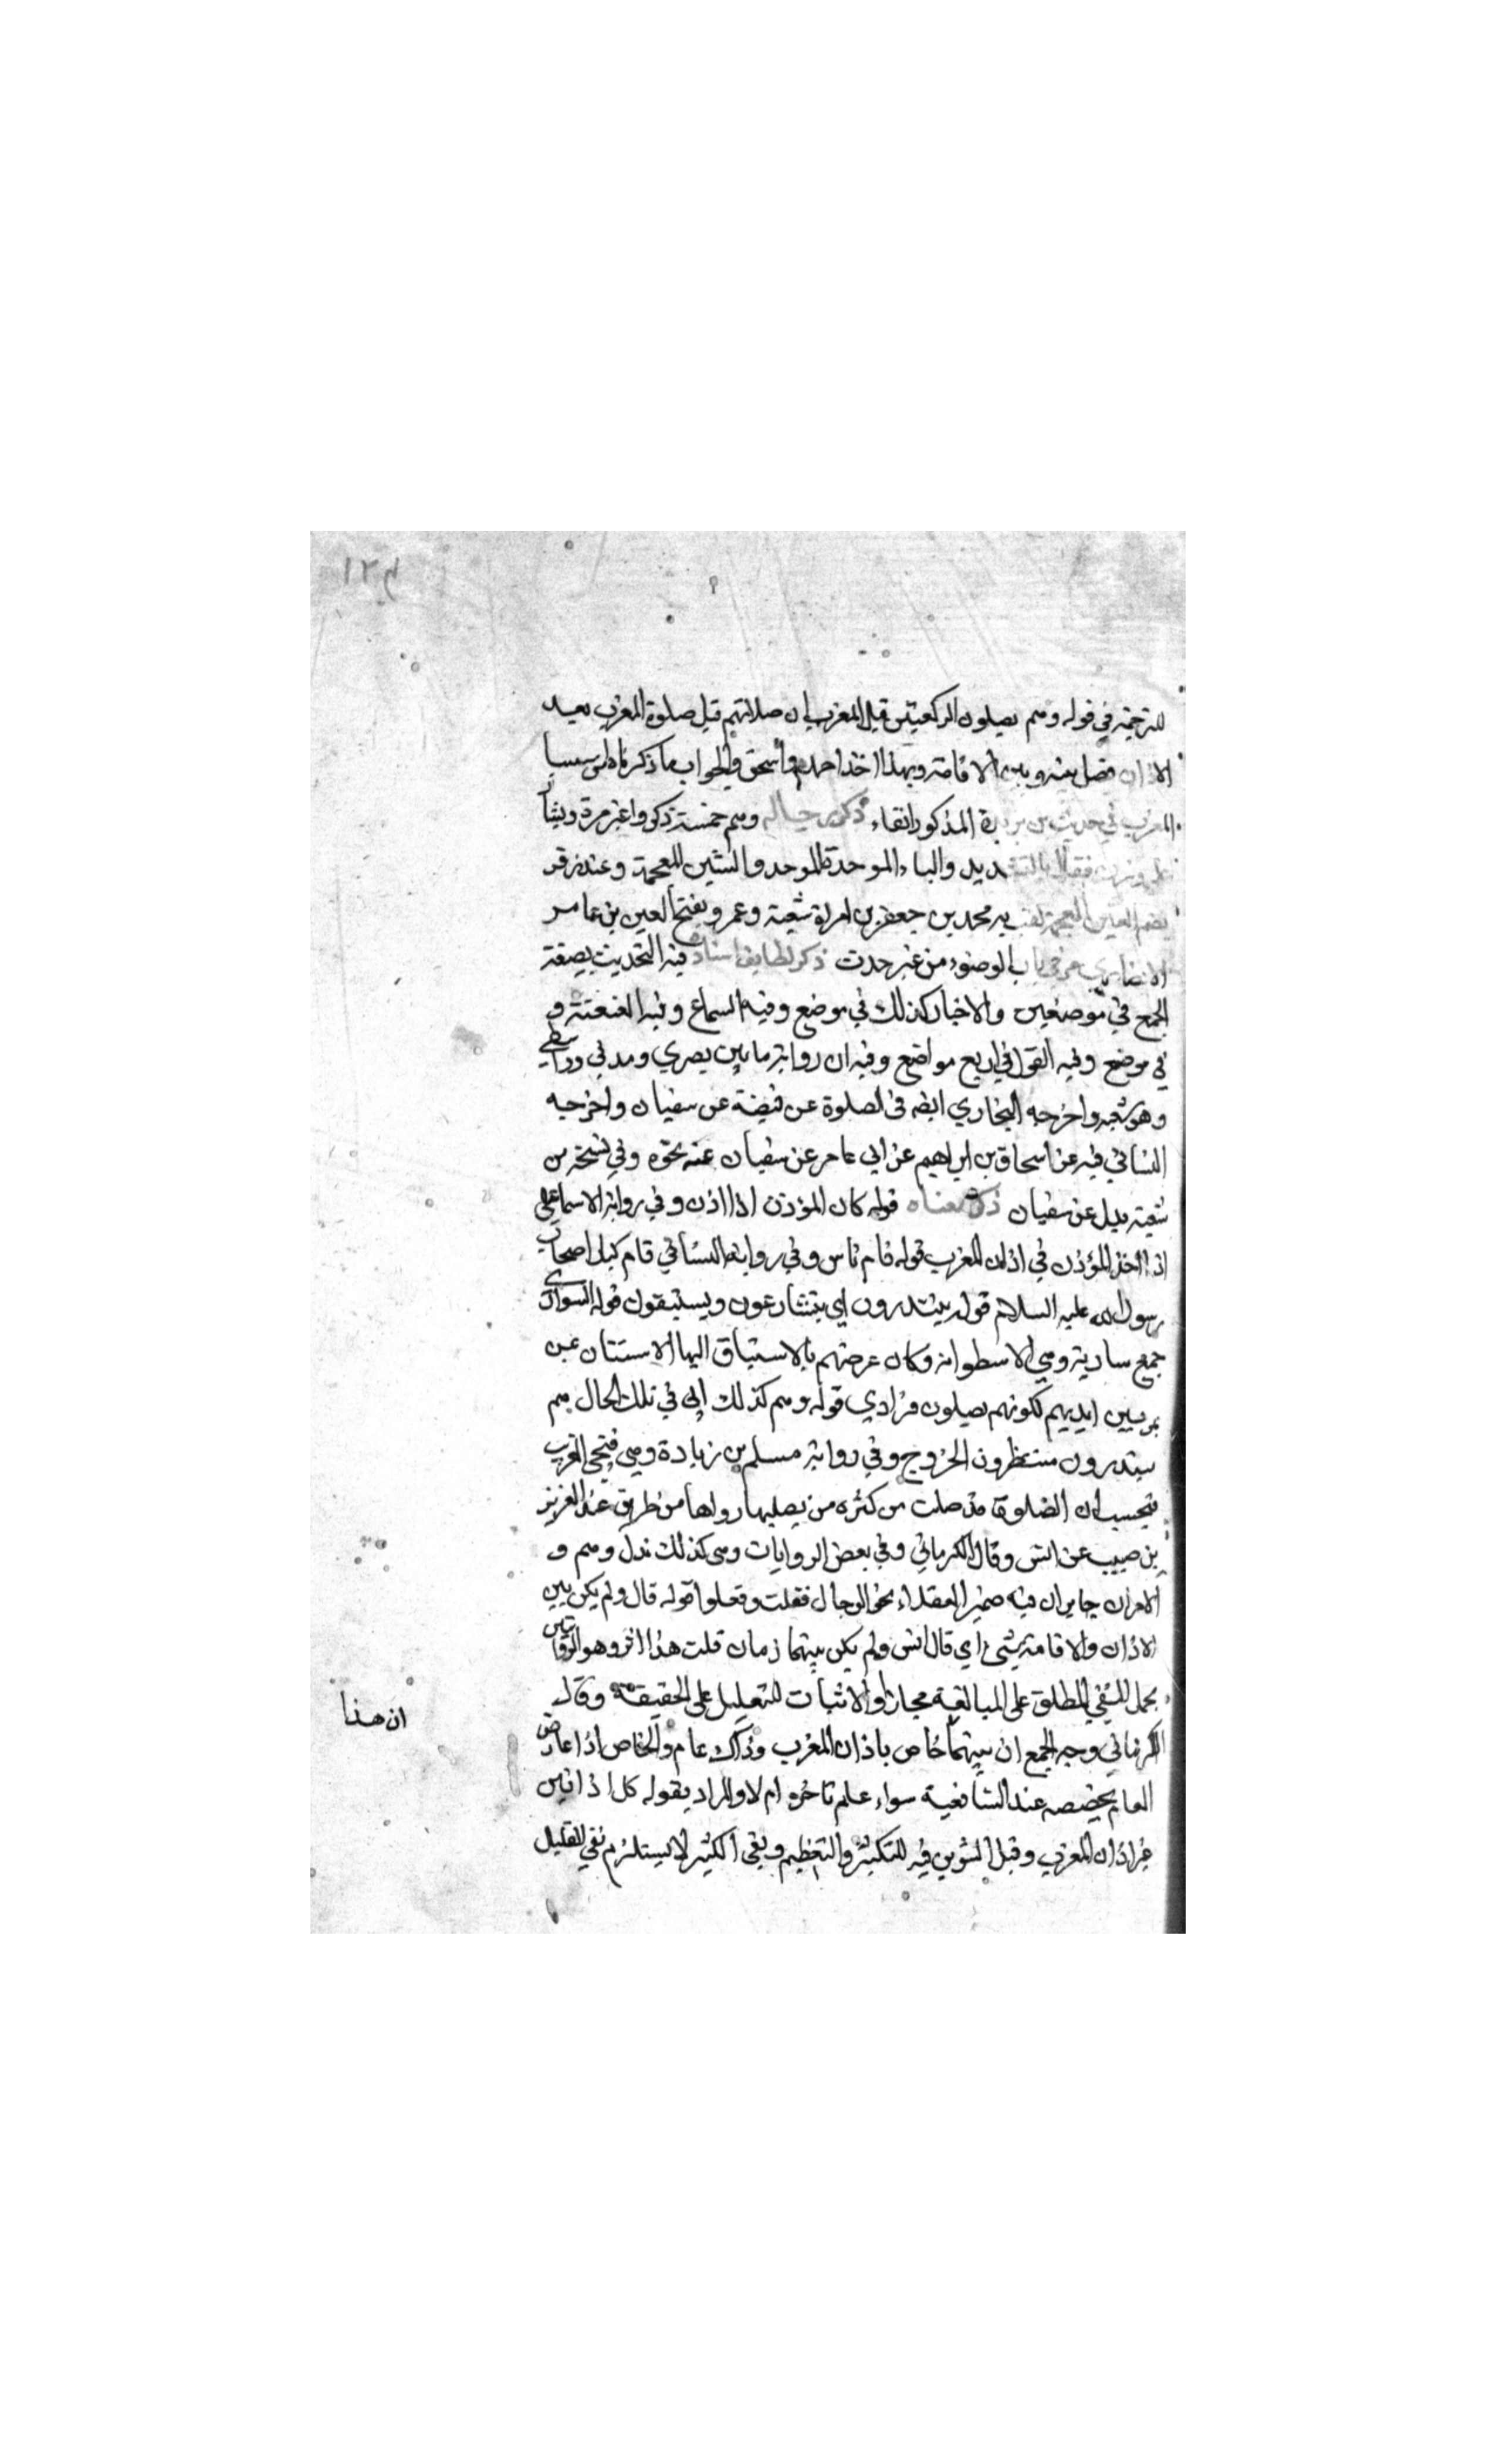 ١٢٤
للترجمة في قوله وهم يصلون الركعتين قبل المغرب ان صلاتهم قبل صلوة المغرب بعد
الاذان فصل بينه وبين الاقامة وبهذا اخذ احمد واسحق والجواب ما ذكرناه
المغرب في حديث بن بريدة المذكور انفا، ذكر رجاله وهم خمسة ذكروا غير مرة
بالتشديد والباء الموحدة والشين المعجمة وغندر
بضم الغين المعجمة لقب محمد بن جعفر بن امراة شعبة وعمرو بفتح العين بن عامر
الانصاري مر في باب الوضوء من غير حدث ذكر لطايف اسناده فيه التحديث بصيغة
الجمع في موضعين والاخبار كذلك في موضع وفيه السماع وفيه العنعنة و
في موضع وفيه القول في اربع مواضع وفيه ان رواية ما بين بصري ومدني وواسطي
وهو شعبه واخرجه البخاري ايضه في الصلوة عن قبيصة عن سفيان واخرجه
النسائي فيه عن اسحاق بن ابراهيم عن ابي عامر عن سفيان عنه نحوه وفي نسخة من
شعبة بدل عن سفيان ذكر معناه قوله كان المؤذن اذا اذن وفي رواية الاسماعيلي
اذا اخذ المؤذن في اذان المغرب قوله قام ناس وفي رواية النسائي قام كبار اصحاب
رسول الله عليه السلام قوله يبتدرون اي يتسارعون ويستبقون قوله السوارى
جمع سارية وهي الاسطوانة وكان غرضهم بالاستباق اليها الاستتار
يمر بين ايديهم لكونهم يصلون فرادي قوله وهم كذلك اى في تلك الحال هم
يبتدرون منتظرون الخروج وفي رواية مسلم من زيادة وهى فيجى الغريب
فيحسب ان الصلوة قد صلت من كثرة من يصليها رواها من طريق عبد العزيز
بن صهيب عن انس وقال الكرماني وفي بعض الروايات وهى كذلك بدل وهم و
الامران جايزان فيه ضمير العقلاء نحو الرجال فعلت وفعلوا قوله قال ولم يكن بين
الاذان والاقامة شيء اي قال انس ولم يكن بينهما زمان قلت هذا
يحمل النفي المطلق على المبالغة مجازا والاثبات للتعليل على الحقيقة وقال
الكرماني وجه الجمع ان بينهما خاص باذان المغرب وذاك عام والخاص اذا عارض
ان هذا
العام يخصصه عند الشافعية سواء علم تاخره ام لا والمراد بقوله كل اذانين
غير اذان المغرب وقيل التنوين فيه للتكثير والتعظيم ونفى الكثير لا يستلزم نفي القليل